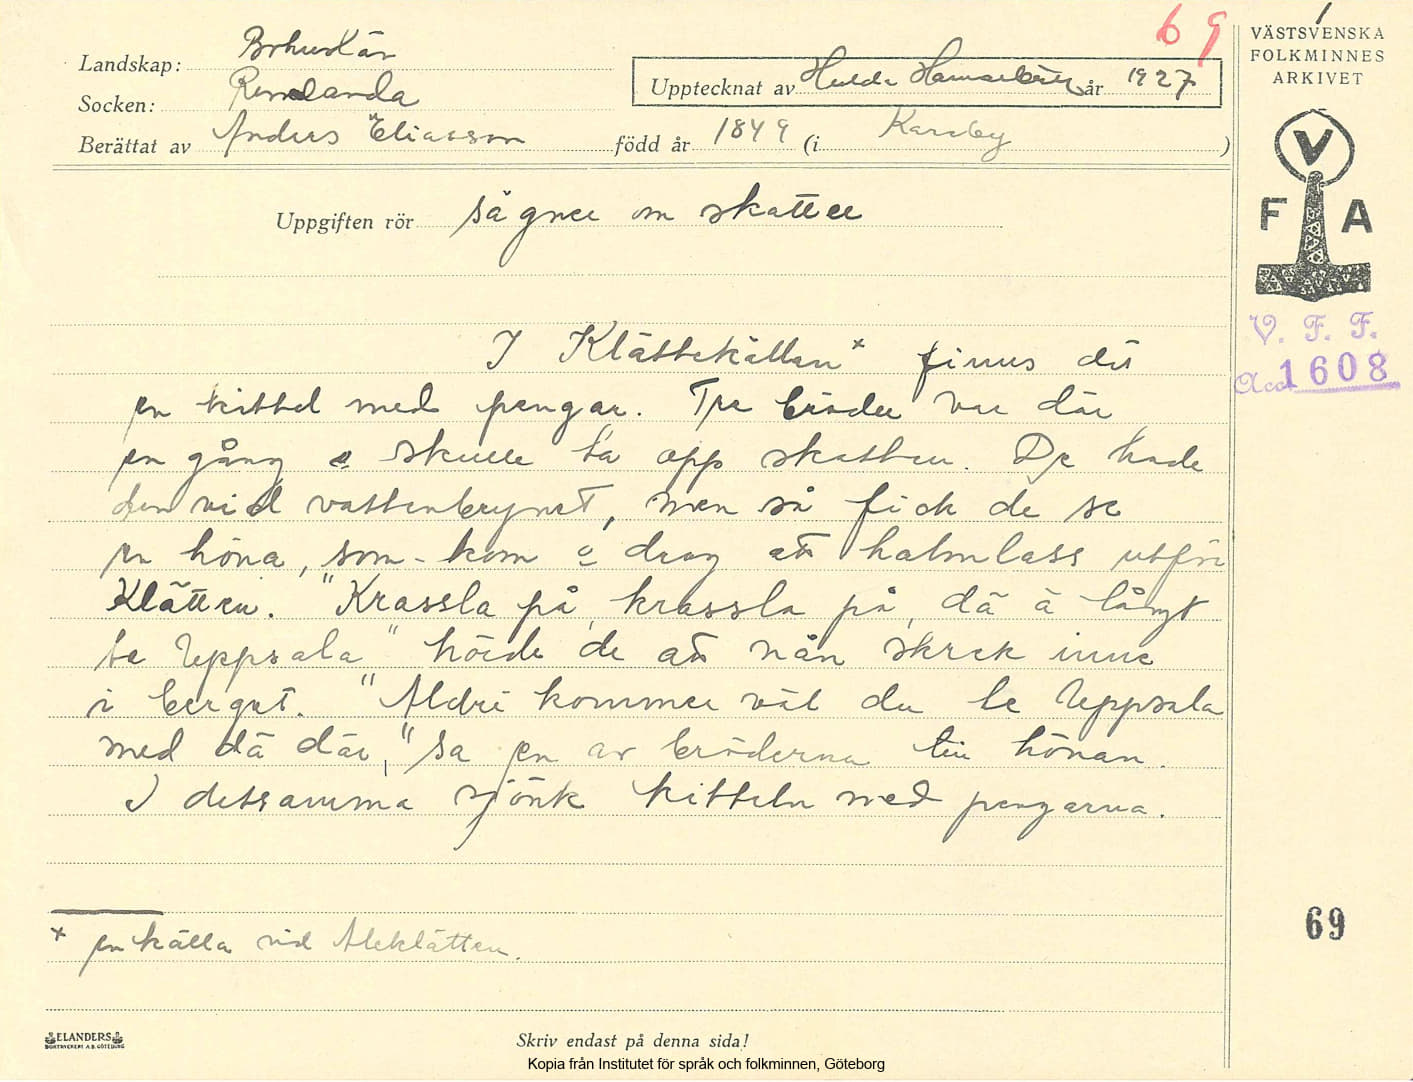 69
1
Landskap: Bohuslän
Socken: Romelanda
Berättat av Anders Eliasson född år 1849 (i Kareby)
Upptecknat av Hulda Hammarbäck år 1927
VÄSTSVENSKA
FOLKMINNES
ARKIVET
V
F A
V. F. F.
Acc 1608
Uppgiften rör sägner om skatter
I Klättekällan x finns det
en kittel med pengar. Tre bröder var där
en gång o skulle ta opp skatten. De hade
den vid vattenbrynet, men så fick de se
en höna, som kom o drog ett halmlass utför
Klätten. "Krassla på, krassla på, dä ä långt
te Uppsala" hörde de att nån skrek inne
i berget. "Aldri kommer väl du te Uppsala
med dä där," sa en av bröderna till hönan.
I detsamma sjönk kitteln med pengarna.
x en källa vid Aleklätten.
69
ELANDERS
BOKTRYCKERI A.B. GÖTEBORG
Skriv endast på denna sida!
Kopia från Institutet för språk och folkminnen, Göteborg